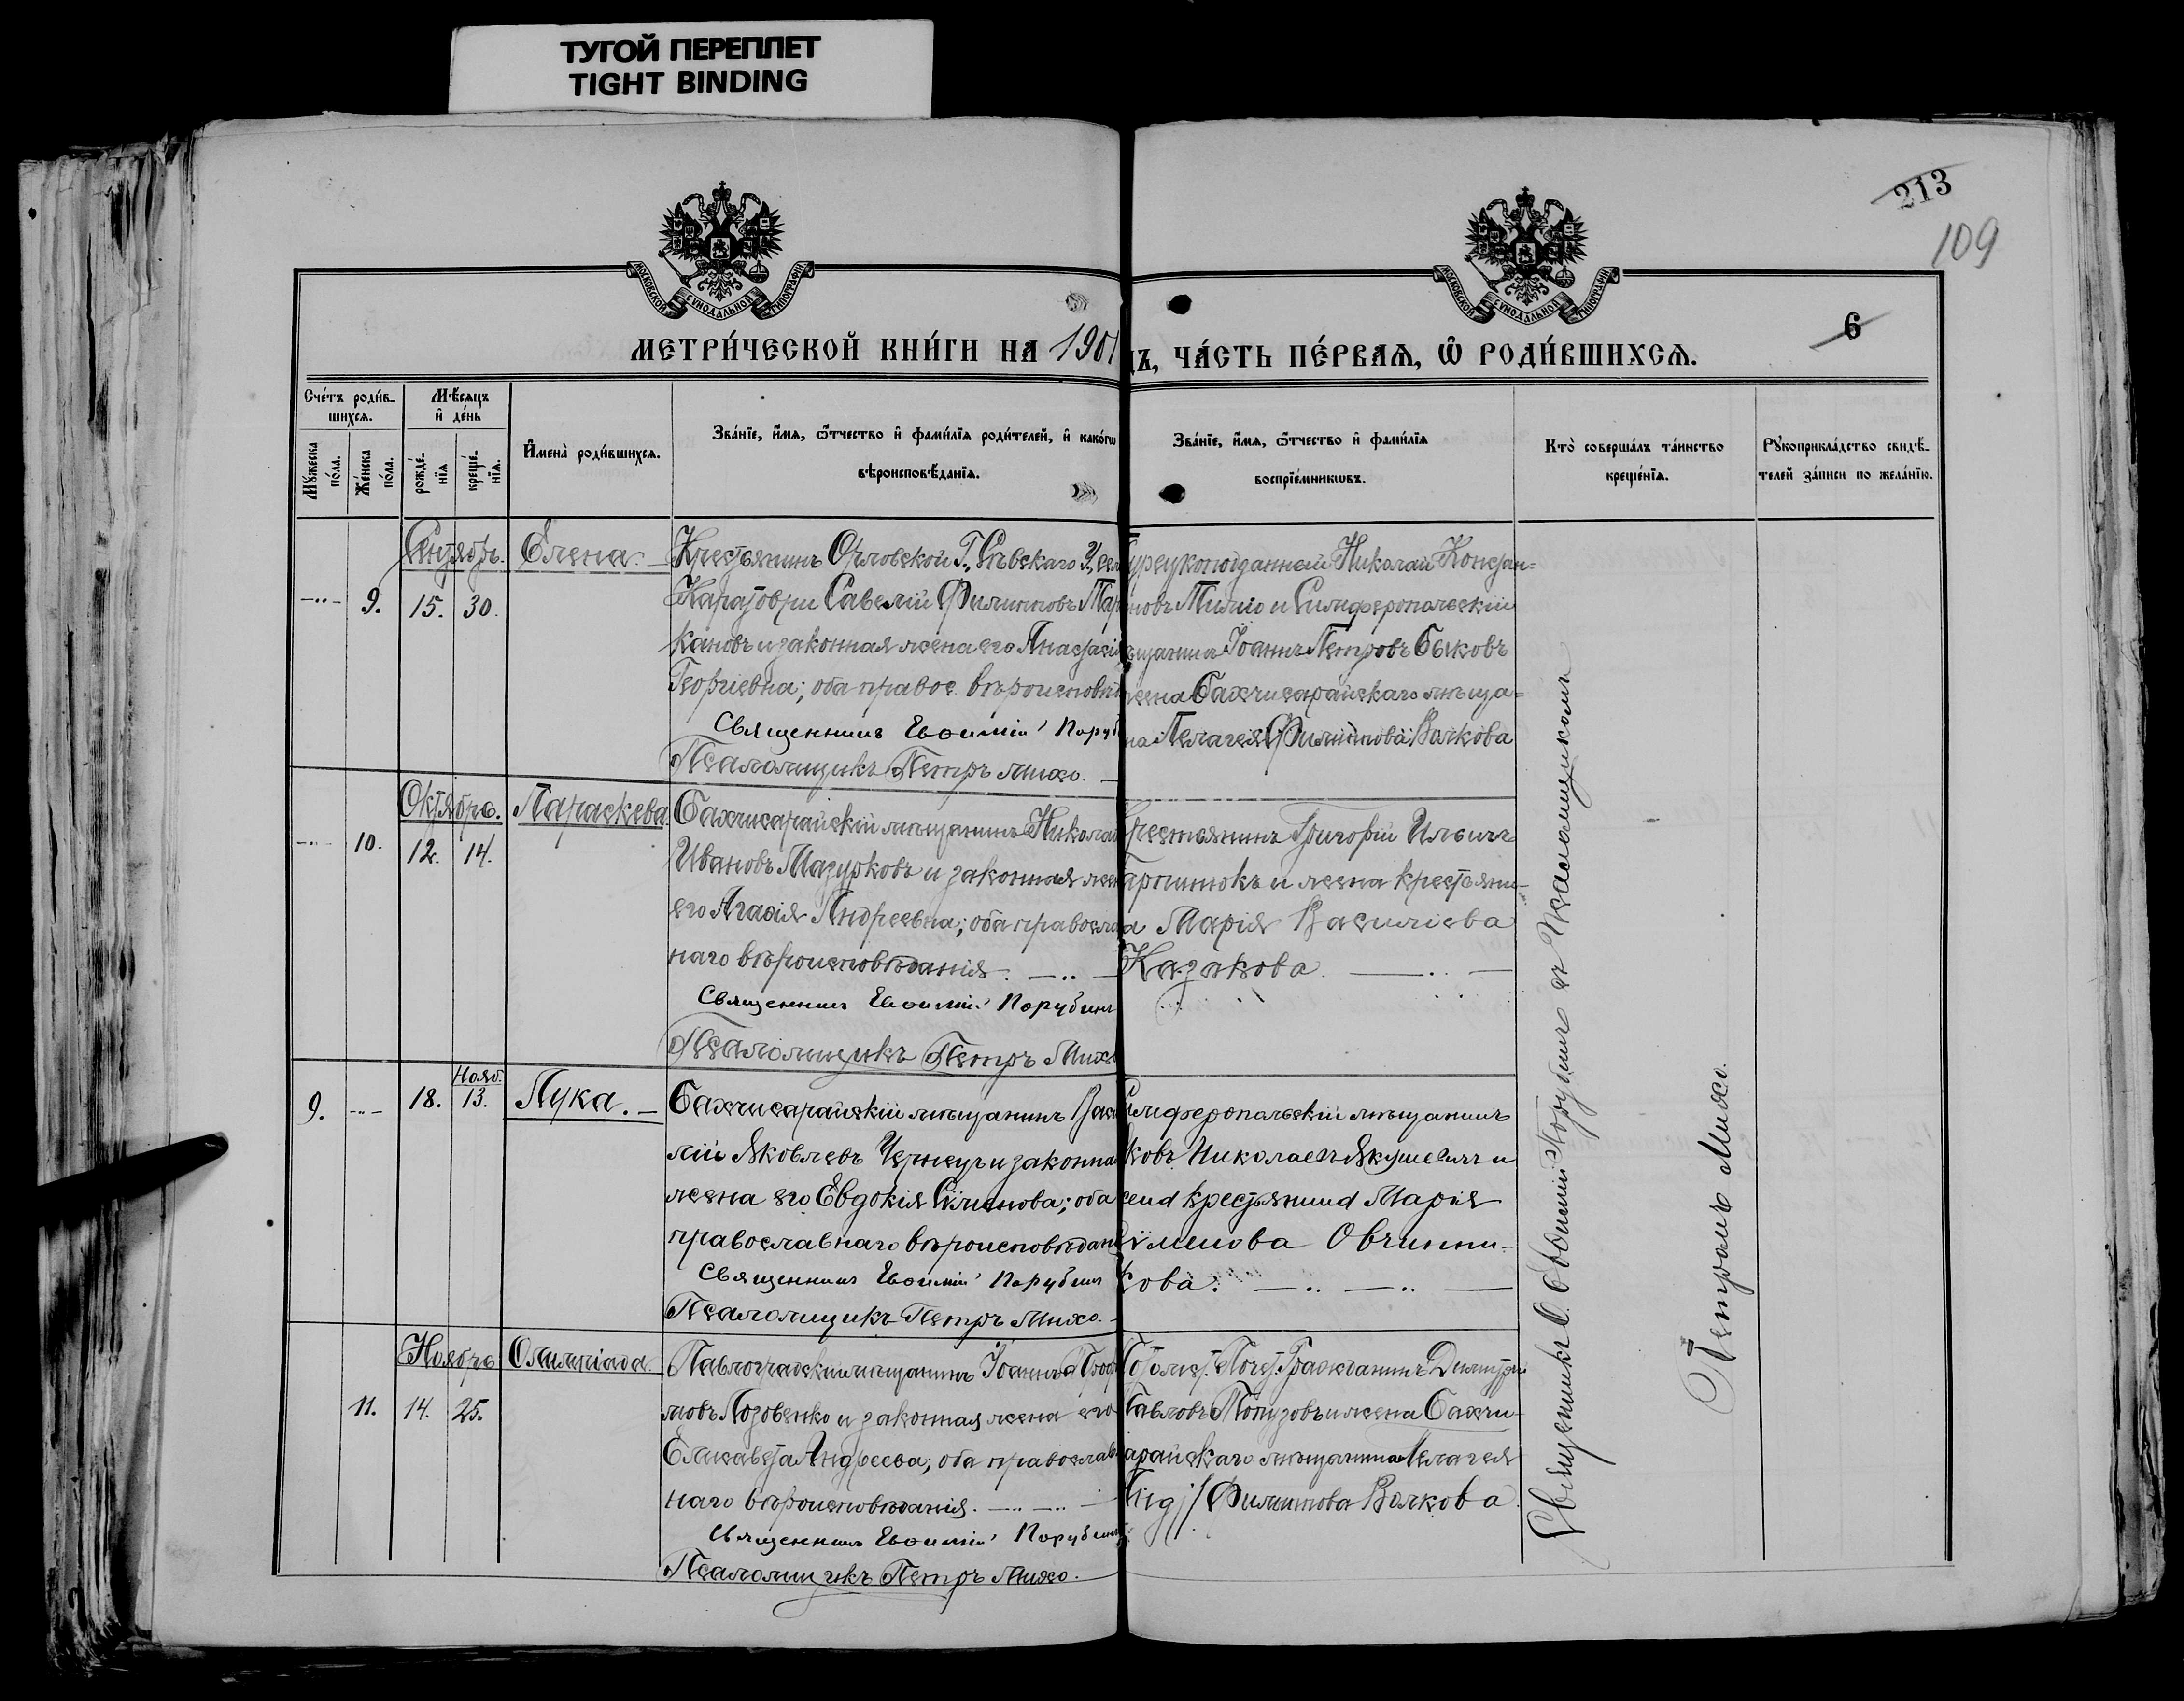 ТУГОЙ ПЕРЕПЛЕТ
TIGHT BINDING
213
109
6
МОСКОВСКОЙ СѴНОДАЛЬНОЙ ТИПОГРАФІИ
МОСКОВСКОЙ СѴНОДАЛЬНОЙ ТИПОГРАФІИ
МЕТРИ́ЧЕСКОЙ КНИ́ГИ НА 190
ЧА́СТЬ ПЕ́РВАЯ, Ѡ РОДИ́ВШИХСЯ.
Сче́тъ роди́в-
шихся.
Мꙋжеска
по́ла.
Же́нска
по́ла.
Мѣ́сяцъ
и де́нь
рожде́-
нїя
креще́-
нїя.
И҆мена̀ роди́вшихся.
Зва́нїе, и҆́мя, ѻ҆́тчество и҆ фами́лїя роди́телей, и҆ како́гѡ
вѣроисповѣ́данїя.
Зва́нїе, и҆́мя, ѻ҆́тчество и҆ фами́лїя
воспрїе́мникѡвъ.
Кто̀ соверша́лъ та́инство
креще́нїя.
Рꙋкоприкла́дство свидѣ́-
телей за́писи по жела́нїю.
Сентябрь.
9. 15. 30.
Елена.
Крестьянинъ Орловской Г., Сѣвскаго У.,
Савелій Филипповъ
кановъ и законная жена его Анастасія
Георгіевна; оба правос. вѣроисповѣд
Священникъ Евѳимій Поруб
Псаломщикъ Петръ Михо.
турецкоподданный Николай Констан-
новъ и Симферопольскій
ѣщанинъ Іоаннъ Петровъ Быковъ
жена Бахчисарайскаго мѣща-
на Пелагея Филиппова Волкова
Октябрь.
10. 12. 14.
Параскева.
Бахчисарайскій мѣщанинъ Николай
Ивановъ Мазурковъ и законная жен
его Агаѳія Андреевна; оба правосла
наго вѣроисповѣданія.
Священникъ Евѳимій Порубинъ
Псаломщикъ Петръ Михо
крестьянинъ Григорій Ильичъ
и жена крестьяни-
а Марія Василіева
Казакова.
9. 18. Нояб. 13.
Лука.
Бахчисарайскій мѣщанинъ Васи
лій Яковлевъ и законна
жена его Евдокія Сѷменова; оба
православнаго вѣроисповѣдан
Священникъ Евѳимій Порубин
Псаломщикъ Петръ Михо.
имферопольскій мѣщанинъ
ковъ Николаевъ Якушевичъ и
жена крестьянина Марія
Сѷменова Овчинни-
кова.
Ноябрь
11. 14. 25.
Олимпіада.
Павлоградскій мѣщанинъ Іоаннъ Троф
мовъ Лозовенко и законная жена его
Елисавета Андреева; оба православ
наго вѣроисповѣданія.
Священникъ Евѳимій Порубин
Псаломщикъ Петръ Михо.
Потомст. Почет. Гражданинъ Димитрій
Павловъ и жена Бахчи-
сарайскаго мѣщанина Пелагея
Филиппова Волкова
Священникъ О. Евѳимій Порубинъ съ Псаломщикомъ
Петромъ Михо.